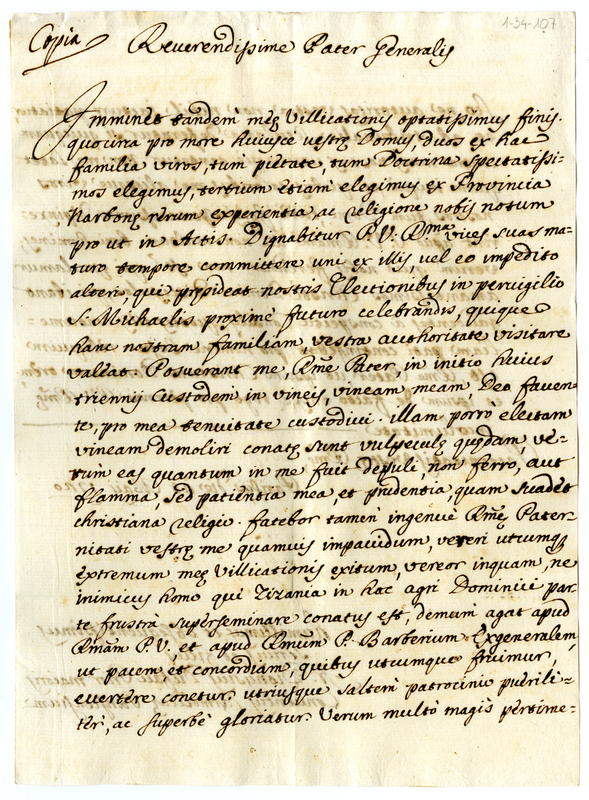 1-34-107
Copia Reverendissime Pater Generalis
Imminet tandem meę Villicationis optatissimus finis.
quocirca pro more huiusce vestrę Domus, duos ex hac
familia viros, tum pietate, tum Doctrina spectatissi=
mos elegimus, tertium etiam elegimus ex Provincia
Narbonę rerum experientia, ac religione nobis notum
pro ut in Actis. Dignabitur P. V. R.ma vices suas ma=
turo tempore committere uni ex illis, vel eo impedito
alteri, qui pręsideat nostris Electionibus in pervigilio
S. Michaelis proximè futuro celebrandis, quique
hanc nostram familiam, vestra authoritate visitare
valeat. Posuerant me, Rme Pater, in initio huius
triennij Custodem in vineis, vineam meam, Deo faven=
te, pro mea tenuitate custodivi. illam porrò electam
vineam demoliri conatę sunt vulpeculę quędam, ve=
rùm eas quantum in me fuit depuli, non ferro, aut
flamma, sed patientia mea, et prudentia, quam suadet
christiana religio. fatebor tamen ingenuè Rmę Pater=
nitati vestrę me quamvis impavidum, vereri utcumq3
extremum meę Villicationis exitum, vereor inquam, ne
inimicus homo qui Zizania in hac agri Dominici par=
te frustra superseminare conatus est, demum agat apud
Rmam P. V. et apud Rmum P. Barberium Exgeneralem,
ut pacem, et concordiam, quibus utcumque fruimur,
evertere conetur. utriusque saltem patrocinio puerili=
ter, ac superbè gloriatur. Verum multò magis pertime=